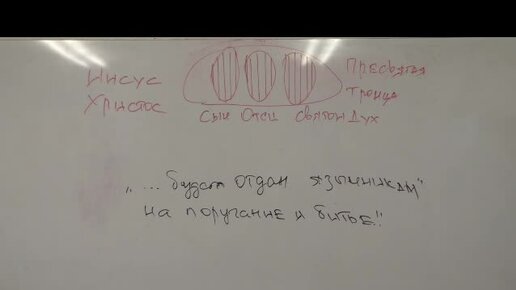 Иисус
Христос
Сын Отец Святой Дух
Пресвятая
Троица
„... будет отдан язычникам"
на поругание и битье!"